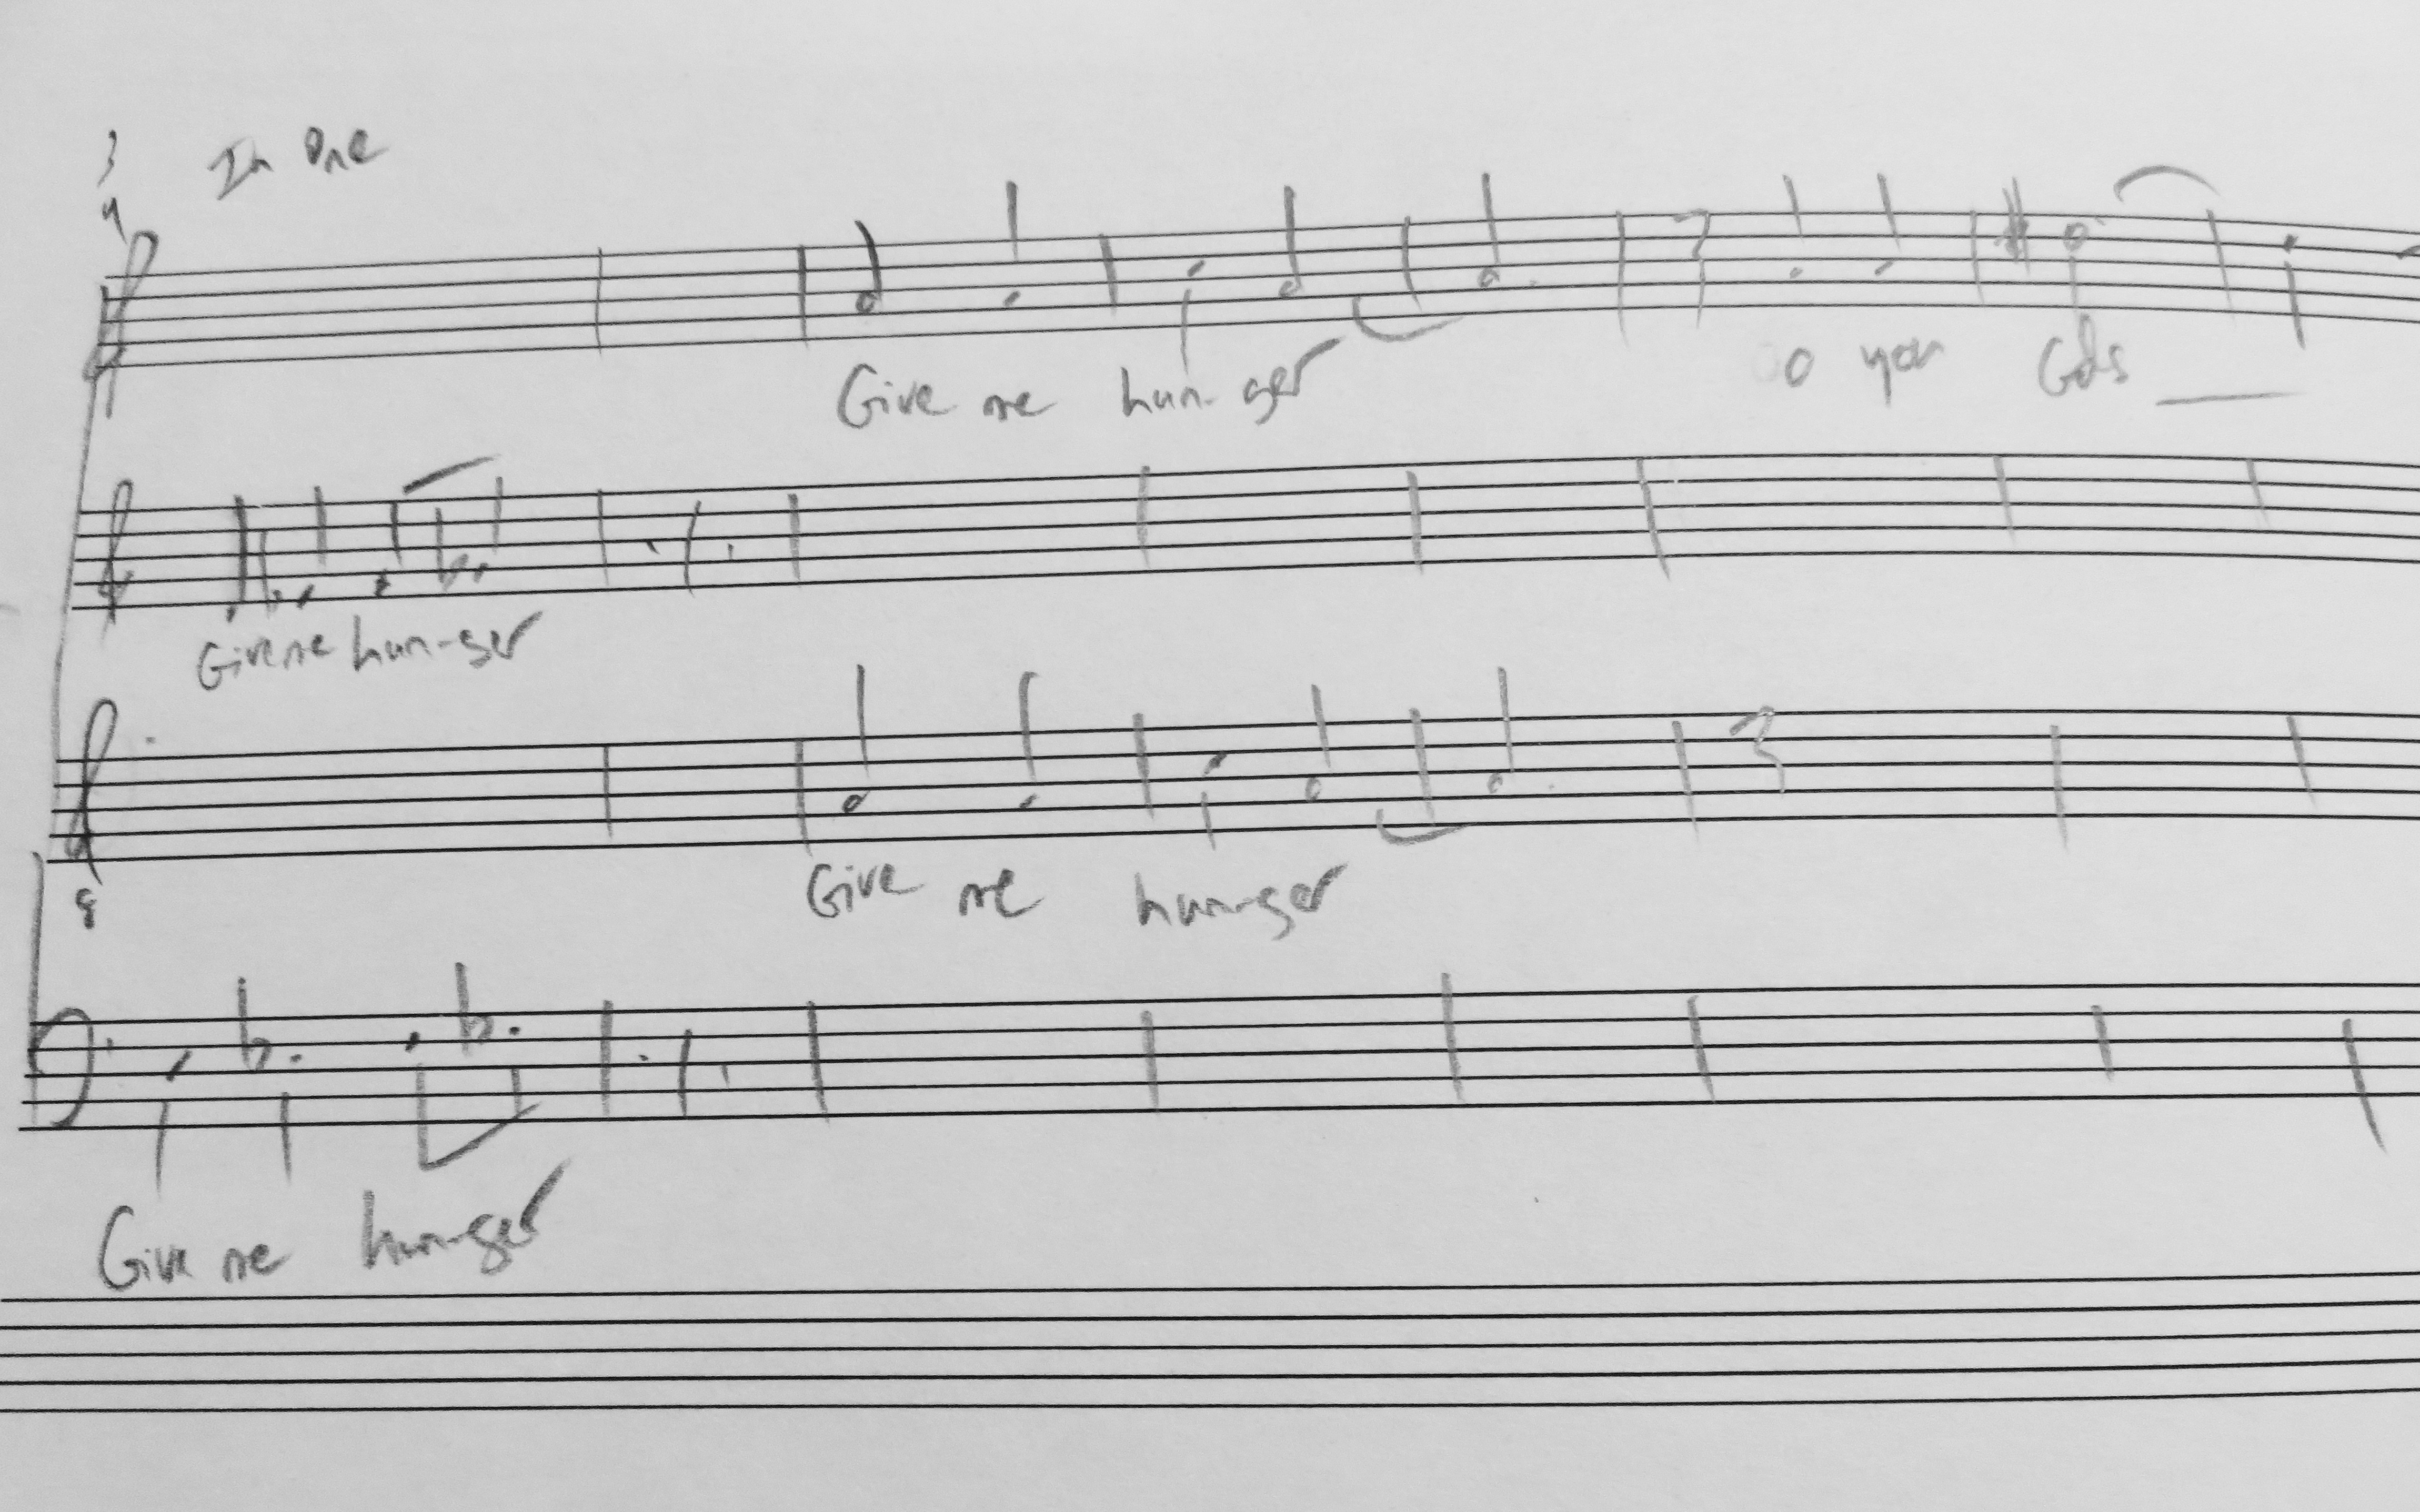 3
4
In One
Give me hun-ger o you Gds
Give me hun-ger
8
Give me hun-ger
Give me hun-ger